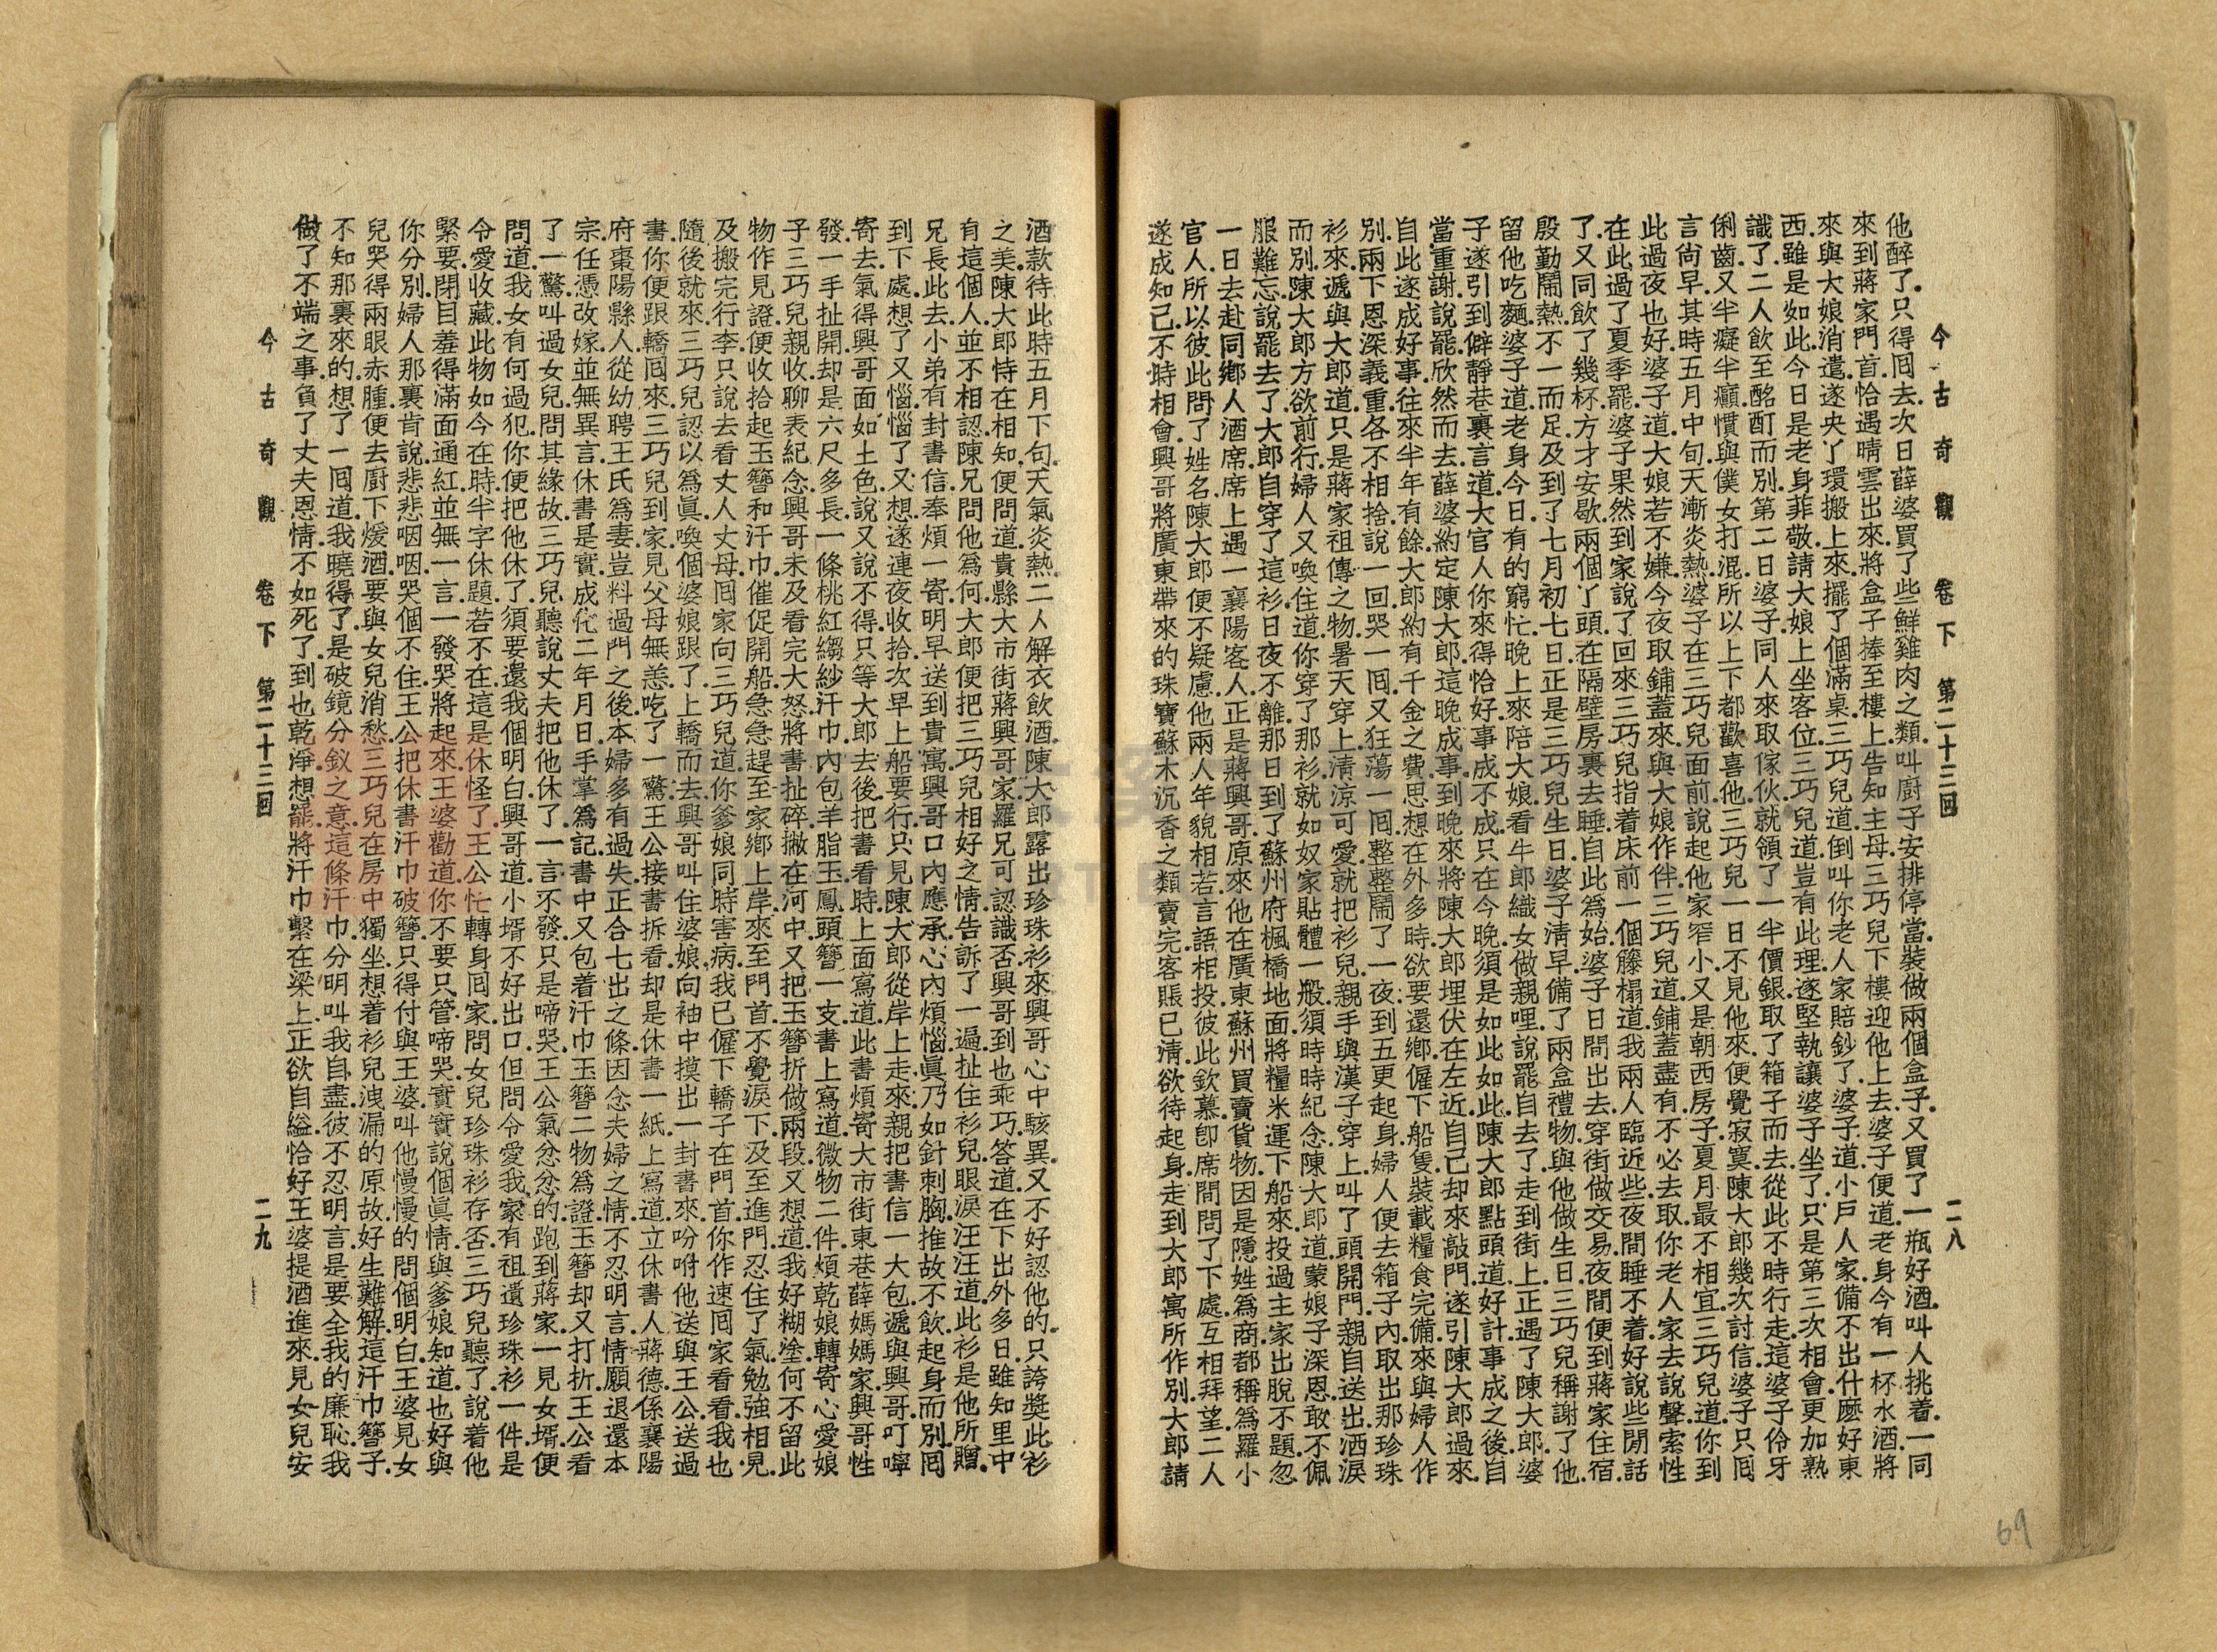 今古奇觀　卷下　第二十三回　二八
他醉了.只得囘去.次日薛婆買了些鮮雞肉之類.叫厨子安排停當.裝做兩個盒子.又買了一瓶好酒.叫人挑着.一同
來到蔣家門首.恰遇晴雲出來.將盒子捧至樓上告知主母.三巧兒下樓迎他上去.婆子便道.老身今有一杯水酒.將
來與大娘消遣.遂央丫環搬上來.擺了個滿桌.三巧兒道.倒叫你老人家賠鈔了.婆子道.小戶人家備不出什麼好東
西.雖是如此.今日是老身菲敬.請大娘上坐客位.三巧兒道.豈有此理.遂堅執讓婆子坐了.只是第三次相會.更加熟
識了.二人飲至酩酊而別.第二日婆子同人來取傢伙.就領了一半價銀.取了箱子而去.從此不時行走.這婆子伶牙
俐齒.又半癡半癲.慣與僕女打混.所以上下都歡喜他.三巧兒一日不見他來.便覺寂寞.陳大郎幾次討信.婆子只囘
言尚早.其時五月中旬.天漸炎熱.婆子在三巧兒面前說起他家窄小.又是朝西房子.夏月最不相宜.三巧兒道.你到
此過夜也好.婆子道.大娘若不嫌.今夜取鋪蓋來.與大娘作伴.三巧兒道.鋪蓋盡有.不必去取.你老人家去說聲.索性
在此過了夏季罷.婆子果然到家說了.回來三巧兒指着床前一個籐榻道.我兩人臨近些.夜間睡不着.好說些閒話
了.又同飲了幾杯.方才安歇.兩個丫頭.在隔壁房裏去睡.自此爲始.婆子日間出去.穿街做交易.夜間便到蔣家住宿.
殷勤鬧熱.不一而足.及到了七月初七日.正是三巧兒生日.婆子清早備了兩盒禮物.與他做生日.三巧兒稱謝了.他
留他吃麵.婆子道.老身今日有的窮忙.晚上來陪大娘.看牛郎織女做親哩.說罷自去了.走到街上.正遇了陳大郎.婆
子遂引到僻靜巷裏.言道.大官人.你來得恰好.事成不成.只在今晚.須是如此如此.陳大郎點頭道.好計.事成之後.自
當重謝.說罷.欣然而去.薛婆約定陳大郎.這晚成事.到晚來.將陳大郎埋伏在左近.自己却來敲門.遂引陳大郎過來.
自此遂成好事.往來半年有餘.大郎約有千金之費.思想在外多時.欲要還鄉.僱下船隻.裝載糧食完備.來與婦人作
別.兩下恩深義重.各不相捨.說一回.哭一囘.又狂蕩一囘.整整鬧了一夜.到五更起身.婦人便去箱子內取出那珍珠
衫來.遞與大郎道.只是蔣家祖傳之物.暑天穿上.清涼可愛.就把衫兒親手與漢子穿上.叫了頭開門.親自送出.洒淚
而別.陳大郎方欲前行.婦人又喚住道.你穿了那衫.就如奴家貼體一般.須時時紀念.陳大郎道.蒙娘子深恩.敢不佩
服難忘.說罷去了.大郎自穿了這衫.日夜不離.那日到了蘇州府楓橋地面.將糧米運下船來.投過主家出脫.不題.忽
一日去赴同鄉人酒席.席上遇一襄陽客人.正是蔣興哥.原來他在廣東蘇州買賣貨物.因是隱姓爲商.都稱爲羅小
官人.所以彼此問了姓名.陳大郎便不疑慮.他兩人年貌相若.言語相投.彼此欽慕.卽席間問了下處.互相拜望.二人
遂成知己.不時相會.興哥將廣東帶來的珠寶蘇木沉香之類賣完.客賬已清.欲待起身.走到大郎寓所作別.大郎請
酒款待.此時五月下旬.天氣炎熱.二人解衣飲酒.陳大郎露出珍珠衫來.興哥心中駭異.又不好認他的.只誇獎此衫
之美.陳大郎恃在相知.便問道.貴縣大市街蔣興哥家.羅兄可認識否.興哥到也乖巧.答道.在下出外多日.雖知里中
有這個人.並不相認.陳兄問他爲何.大郎便把三巧兒相好之情.告訴了一遍.扯住衫兒.眼淚汪汪道.此衫是他所贈.
兄長此去.小弟有封書信.奉煩一寄.明早送到貴寓.興哥口內應承.心內煩惱.眞乃如針刺胸.推故不飲.起身而別.囘
到下處.想了又惱.惱了又想.遂連夜收拾.次早上船要行.只見陳大郎從岸上走來.親把書信一大包.遞與興哥.叮嚀
寄去.氣得興哥面如土色.說又說不得.只等大郎去後.把書看時.上面寫道.此書煩寄大市街東巷薛媽媽家.興哥性
發.一手扯開.却是六尺多長一條桃紅縐紗汗巾.內包羊脂玉鳳頭簪一支.書上寫道.微物二件.煩乾娘轉寄心愛娘
子三巧兒親收.聊表紀念.興哥未及看完大怒.將書扯碎.撇在河中.又把玉簪折做兩段.又想道.我好糊塗.何不留此
物作見證.便收拾起玉簪和汗巾.催促開船.急急趕至家鄉.上岸來至門首.不覺淚下.及至進門.忍住了氣.勉強相見.
及搬完行李.只說去看丈人丈母.囘家向三巧兒道.你爹娘同時害病.我已僱下轎子在門首.你作速囘家看看.我也
隨後就來.三巧兒認以爲眞.喚個婆娘跟了.上轎而去.興哥叫住婆娘.向袖中摸出一封書來.吩咐他送與王公.送過
書.你便跟轎囘來.三巧兒到家.見父母無恙.吃了一驚.王公接書拆看.却是休書一紙.上寫道.立休書人蔣德.係襄陽
府棗陽縣人.從幼聘王氏爲妻.豈料過門之後.本婦多有過失.正合七出之條.因念夫婦之情.不忍明言.情願退還本
宗.任憑改嫁.並無異言.休書是實.成化二年月日.手掌爲記.書中又包着汗巾玉簪二物爲證.玉簪却又打折.王公看
了一驚.叫過女兒問其緣故.三巧兒聽說丈夫把他休了.一言不發.只是啼哭.王公氣忿忿的跑到蔣家.一見女壻.便
問道.我女有何過犯.你便把他休了.須要還我個明白.興哥道.小壻不好出口.但問令愛.我家有祖遺珍珠衫一件.是
令愛收藏.此物如今在時.半字休題.若不在這.是休怪了.王公忙轉身囘家.問女兒珍珠衫存否.三巧兒聽了.說着他
緊要.閉目羞得滿面通紅.並無一言.一發哭將起來.王婆勸道.你不要只管啼哭.實實說個眞情.與爹娘知道.也好與
你分別.婦人那裏肯說.悲悲咽咽.哭個不住.王公把休書汗巾破簪.只得付與王婆.叫他慢慢的問個明白.王婆見女
兒哭得兩眼赤腫.便去廚下煖酒.要與女兒消愁.三巧兒在房中獨坐.想着衫兒洩漏的原故.好生難解.這汗巾簪子.
不知那裏來的.想了一囘道.我曉得了.是破鏡分釵之意.這條汗巾.分明叫我自盡.彼不忍明言.是要全我的廉恥.我
做了不端之事.負了丈夫恩情.不如死了.到也乾淨.想罷.將汗巾繫在梁上.正欲自縊.恰好王婆提酒進來.見女兒安
今古奇觀　卷下　第二十三回　二九
69